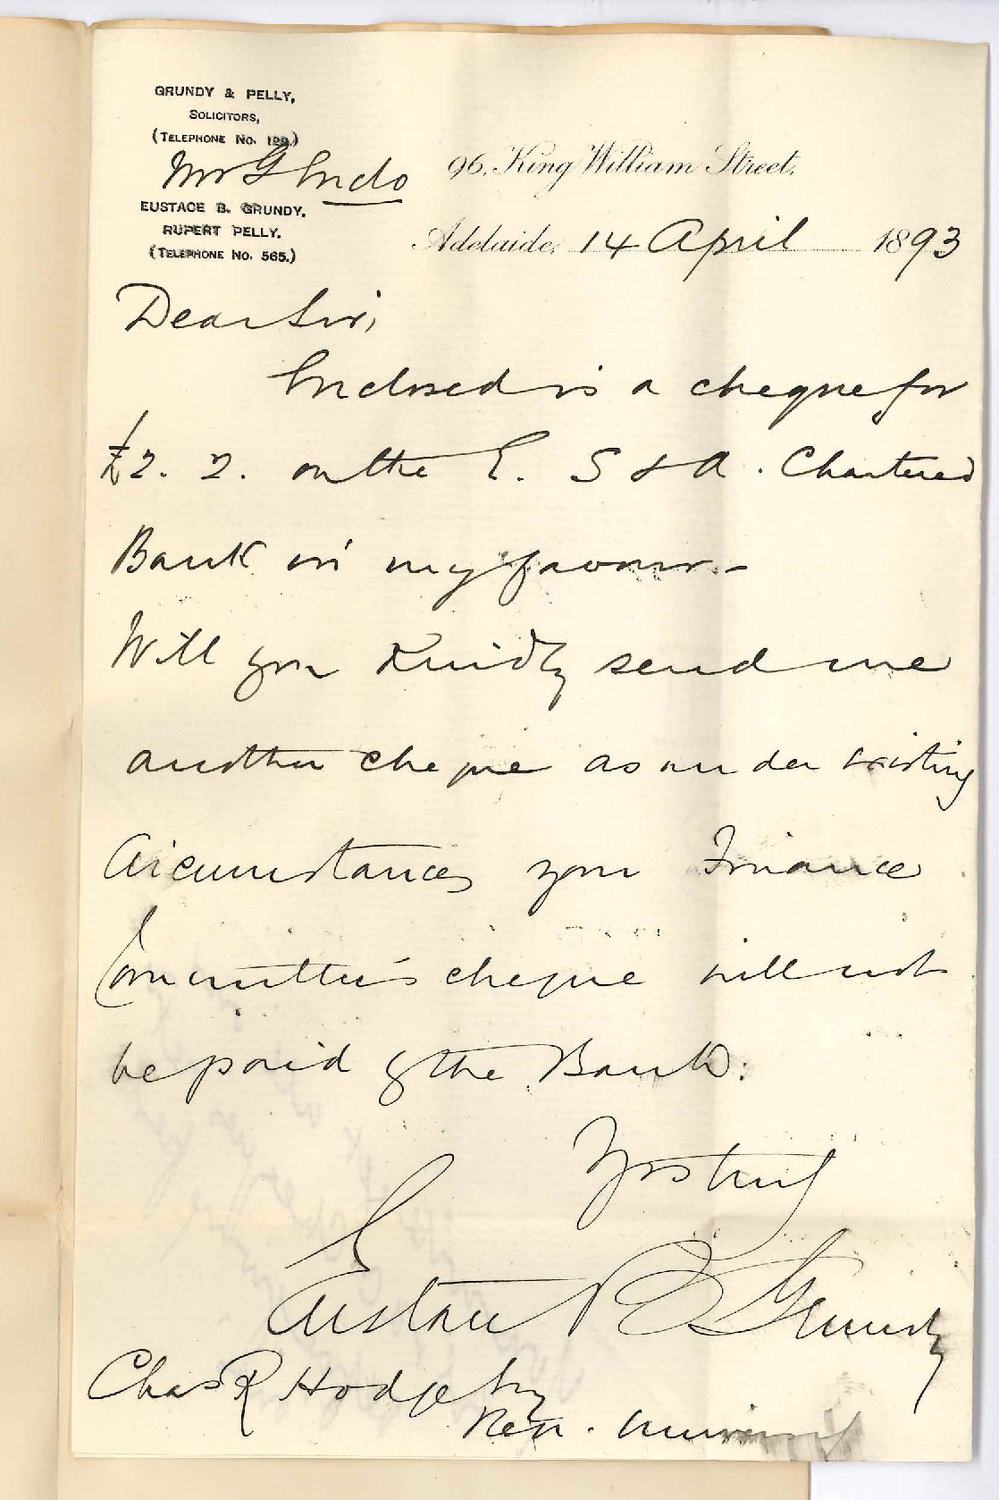 GRUNDY & PELLY,
SOLICITORS,
(TELEPHONE NO. 129.)
EUSTACE B. GRUNDY.
RUPERT PELLY.
(TELEPHONE NO. 565.)
96, King William Street,
Adelaide, 14 April 1893
Dear Sir,
Enclosed is a cheque for
£2. 2. on the E. S & A. Chartered
Bank in my favour.-
Will you Kindly send me
another cheque as under existing
Circumstances your Finance
Committee's cheque will not
be paid by the Bank.
Yrs truly
Eustace B Grundy
Chas R Hodge Esq